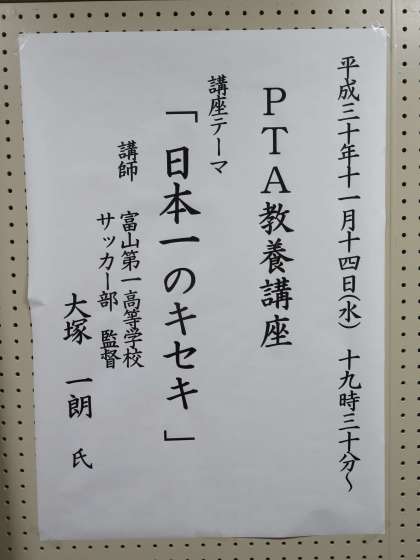 平成三十年十一月十四日(水) 十九時三十分～
PTA教養講座
講座テーマ
「日本一のキセキ」
講師 富山第一高等学校
サッカー部 監督
大塚 一朗 氏